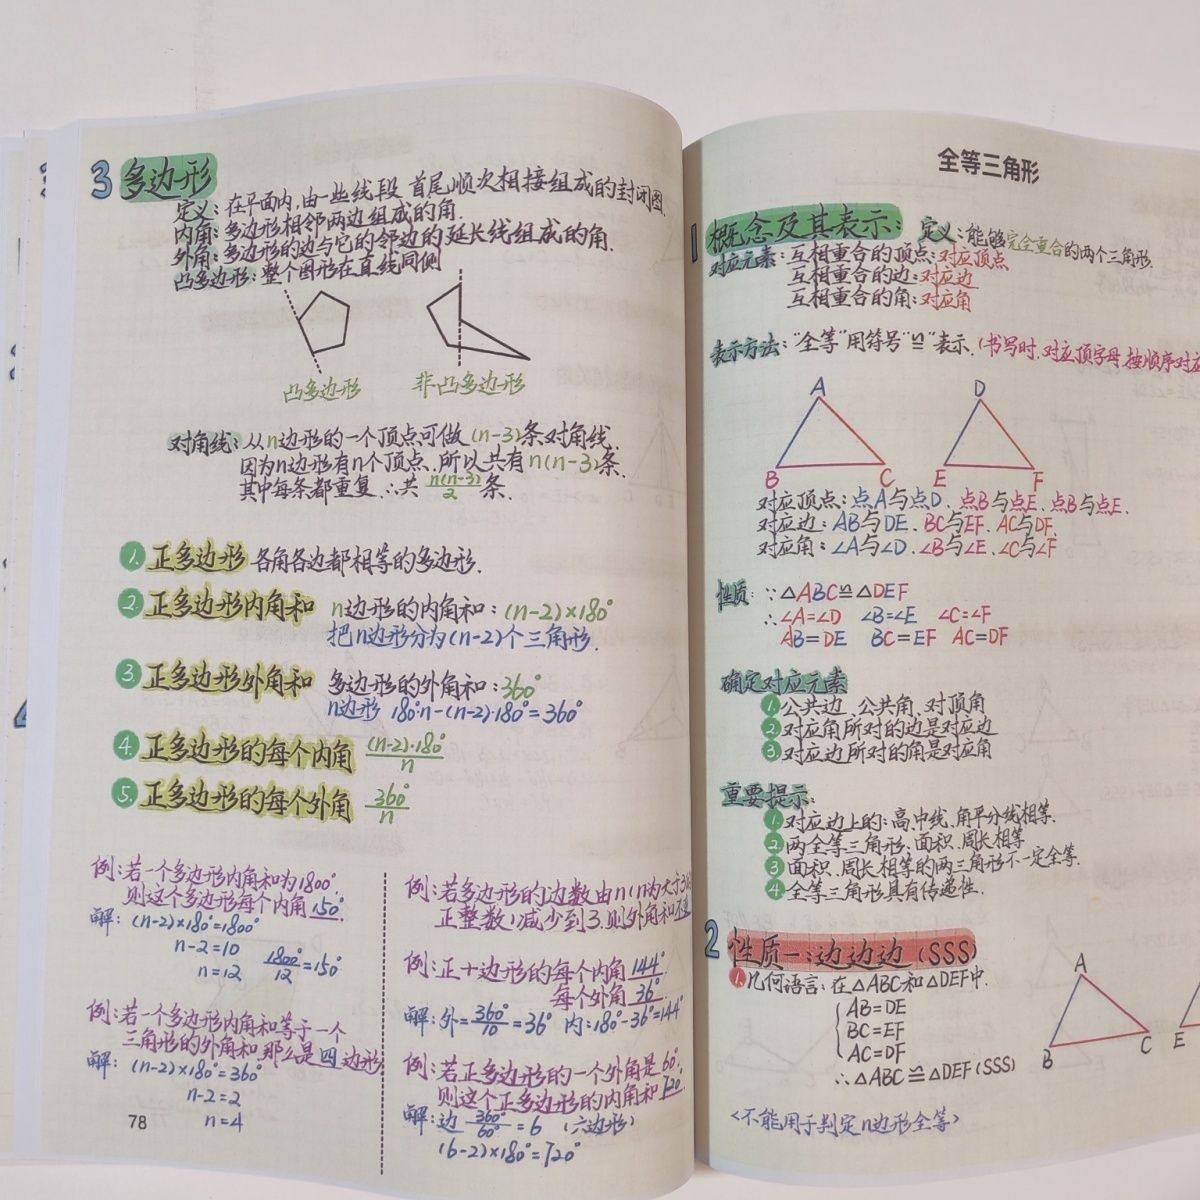 3 多边形
定义:在平面内,由一些线段首尾顺次相接组成的封闭图.
内角:多边形相邻两边组成的角.
外角:多边形的边与它的邻边的延长线组成的角.
凸多边形:整个图形在直线同侧
凸多边形 非凸多边形
对角线:从n边形的一个顶点可做(n-3)条对角线.
因为n边形有n个顶点,所以共有n(n-3)条.
其中每条都重复.∴共 n(n-3)/2 条.
1. 正多边形 各角各边都相等的多边形.
2. 正多边形内角和 n边形的内角和:(n-2)×180°
把n边形分为(n-2)个三角形.
3. 正多边形外角和 多边形的外角和:360°
n边形 180°·n-(n-2)·180°=360°
4. 正多边形的每个内角 (n-2)·180°/n
5. 正多边形的每个外角 360°/n
例:若一个多边形内角和为1800°
则这个多边形每个内角150°.
解:(n-2)×180°=1800°
n-2=10
n=12 1800°/12=150°
例:若一个多边形内角和等于一个
三角形的外角和,那么是四边形
解:(n-2)×180°=360°
n-2=2
n=4
78
例:若多边形的边数由n(n为大于3的
正整数)减少到3.则外角和不变
例:正十边形的每个内角144°
每个外角36°
解:外=360°/10=36° 内:180°-36°=144°
例:若正多边形的一个外角是60°.
则这个正多边形的内角和720°.
解:边 360°/60°=6 (六边形)
(6-2)×180°=720°
全等三角形
1 概念及其表示: 定义:能够完全重合的两个三角形.
对应元素:互相重合的顶点:对应顶点
互相重合的边:对应边
互相重合的角:对应角
表示方法:"全等"用符号"≌"表示.(书写时,对应顶字母按顺序对应
A D
B C E F
对应顶点:点A与点D、点B与点E、点B与点E.
对应边:AB与DE、BC与EF、AC与DF.
对应角:∠A与∠D、∠B与∠E、∠C与∠F.
性质:∵△ABC≌△DEF
∴∠A=∠D ∠B=∠E ∠C=∠F
AB=DE BC=EF AC=DF
确定对应元素
1. 公共边、公共角、对顶角
2. 对应角所对的边是对应边
3. 对应边所对的角是对应角
重要提示:
1. 对应边上的:高、中线、角平分线相等.
2. 两全等三角形、面积、周长相等
3 面积、周长相等的两三角形不一定全等.
4 全等三角形具有传递性.
2 性质一:边边边(SSS)
1. 几何语言:在△ABC和△DEF中.
AB=DE
BC=EF
AC=DF
∴△ABC≌△DEF(SSS)
A
B C E
<不能用于判定n边形全等>